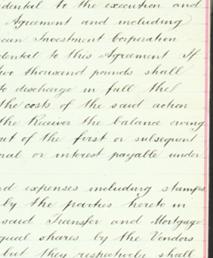 dental to the execution and
Agreement and including
ean Investment Corporation
dental to this Agreement If
two thousand pounds shall
to discharge in full the
the costs of the said action
the Receiver the balance owing
out of the first or subsequent
ral or interest payable under
d expenses including stamps
by the parties hereto in
said Transfer and Mortgage
qual shares by the Vendors
but they respectively shall